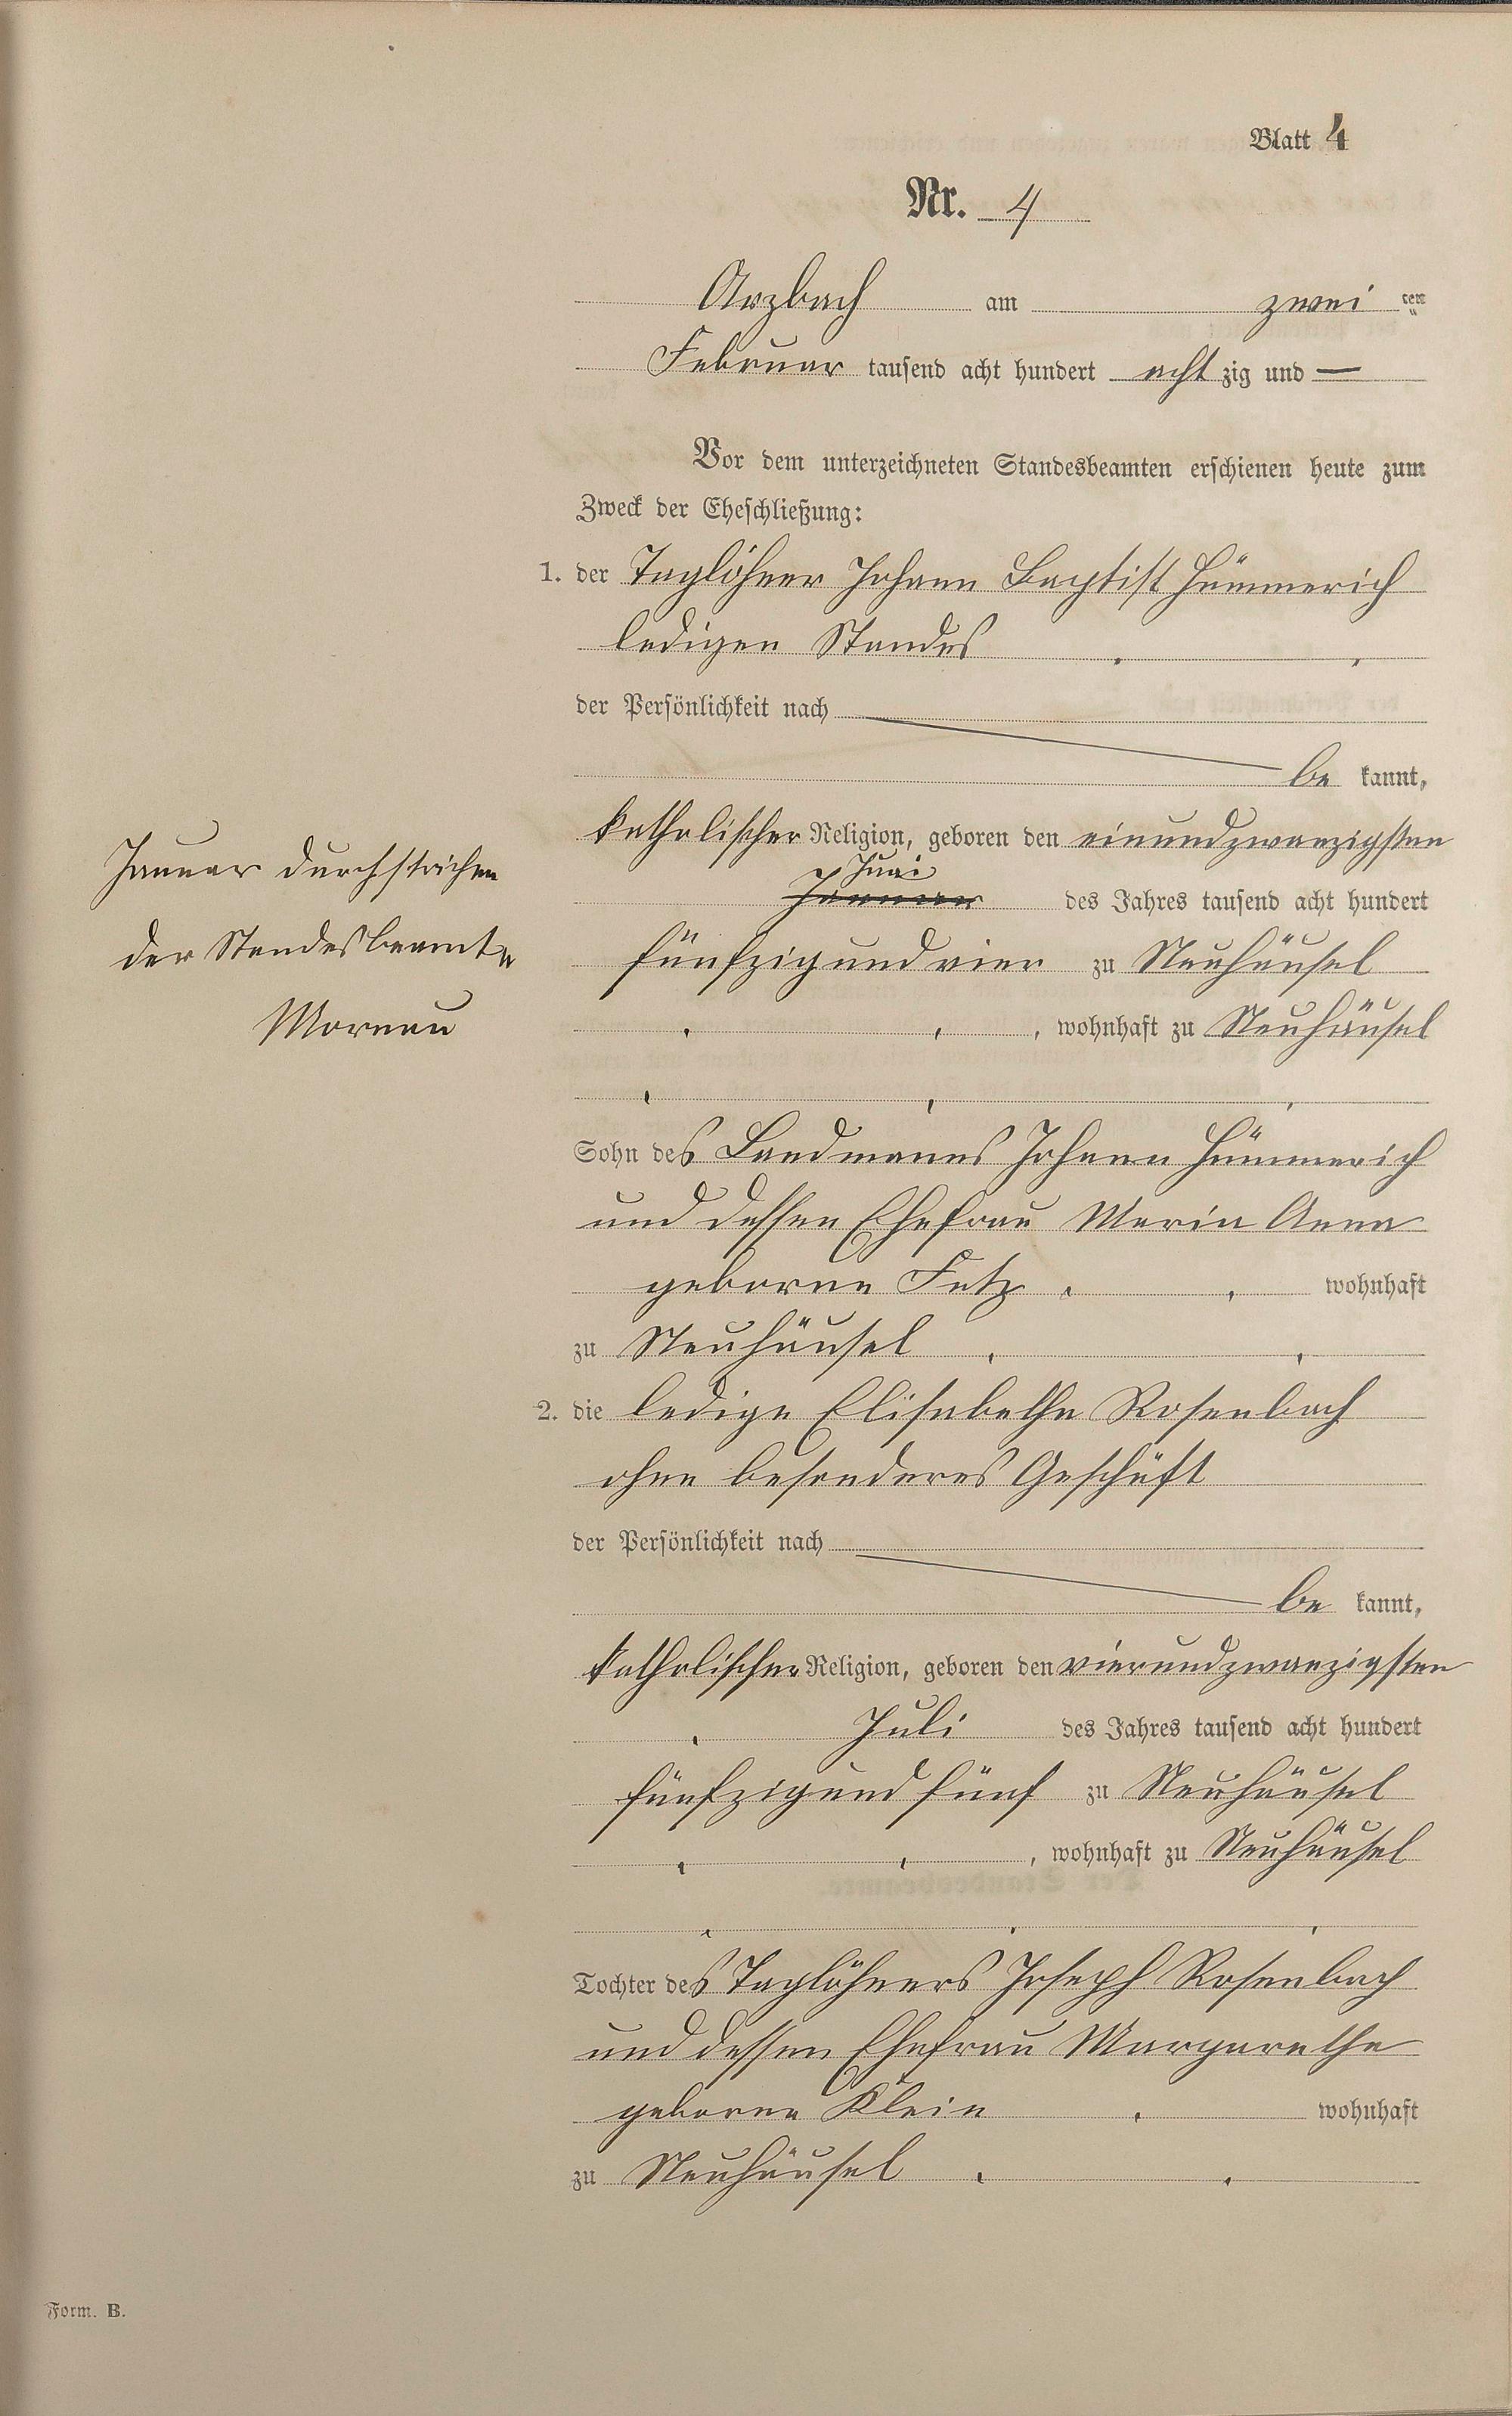 Blatt 4
Nr. 4
Arzbach am zwei ten
Februar tausend acht hundert acht zig und —
Vor dem unterzeichneten Standesbeamten erschienen heute zum
Zweck der Eheschließung:
1. der Taglöhner Johann Baptist Hümmerich
ledigen Standes
der Persönlichkeit nach
be kannt,
katholischer Religion, geboren den einundzwanzigsten
Juni
Januar des Jahres tausend acht hundert
Januar durchstrichen
der Standesbeamte
Mornau
fünfzig und vier zu Neuhäusel
, wohnhaft zu Neuhäusel
Sohn des Landmanns Johann Hümmerich
und dessen Ehefrau Maria Anna
geborne Fetz wohnhaft
zu Neuhäusel
2. die ledige Elisabetha Rosenbach
ohne besonderes Geschäft
der Persönlichkeit nach
be kannt,
katholischer Religion, geboren den vierundzwanzigsten
Juli des Jahres tausend acht hundert
fünfzig und fünf zu Neuhäusel
, wohnhaft zu Neuhäusel
Tochter des Taglöhners Joseph Rosenbach
und dessen Ehefrau Margaretha
geborne Klein wohnhaft
zu Neuhäusel
Form. B.